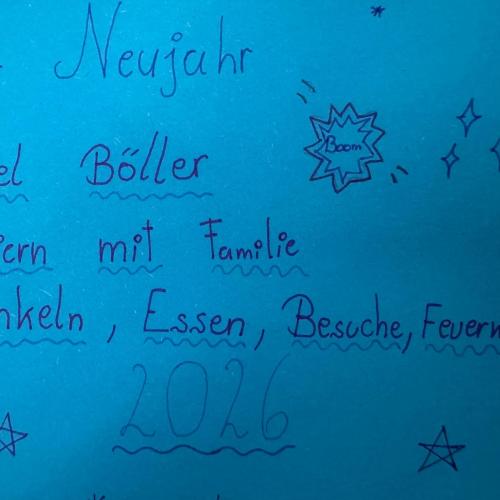 Neujahr
Boom
el Böller
ern mit Familie
nkeln, Essen, Besuche, Feuern
2026